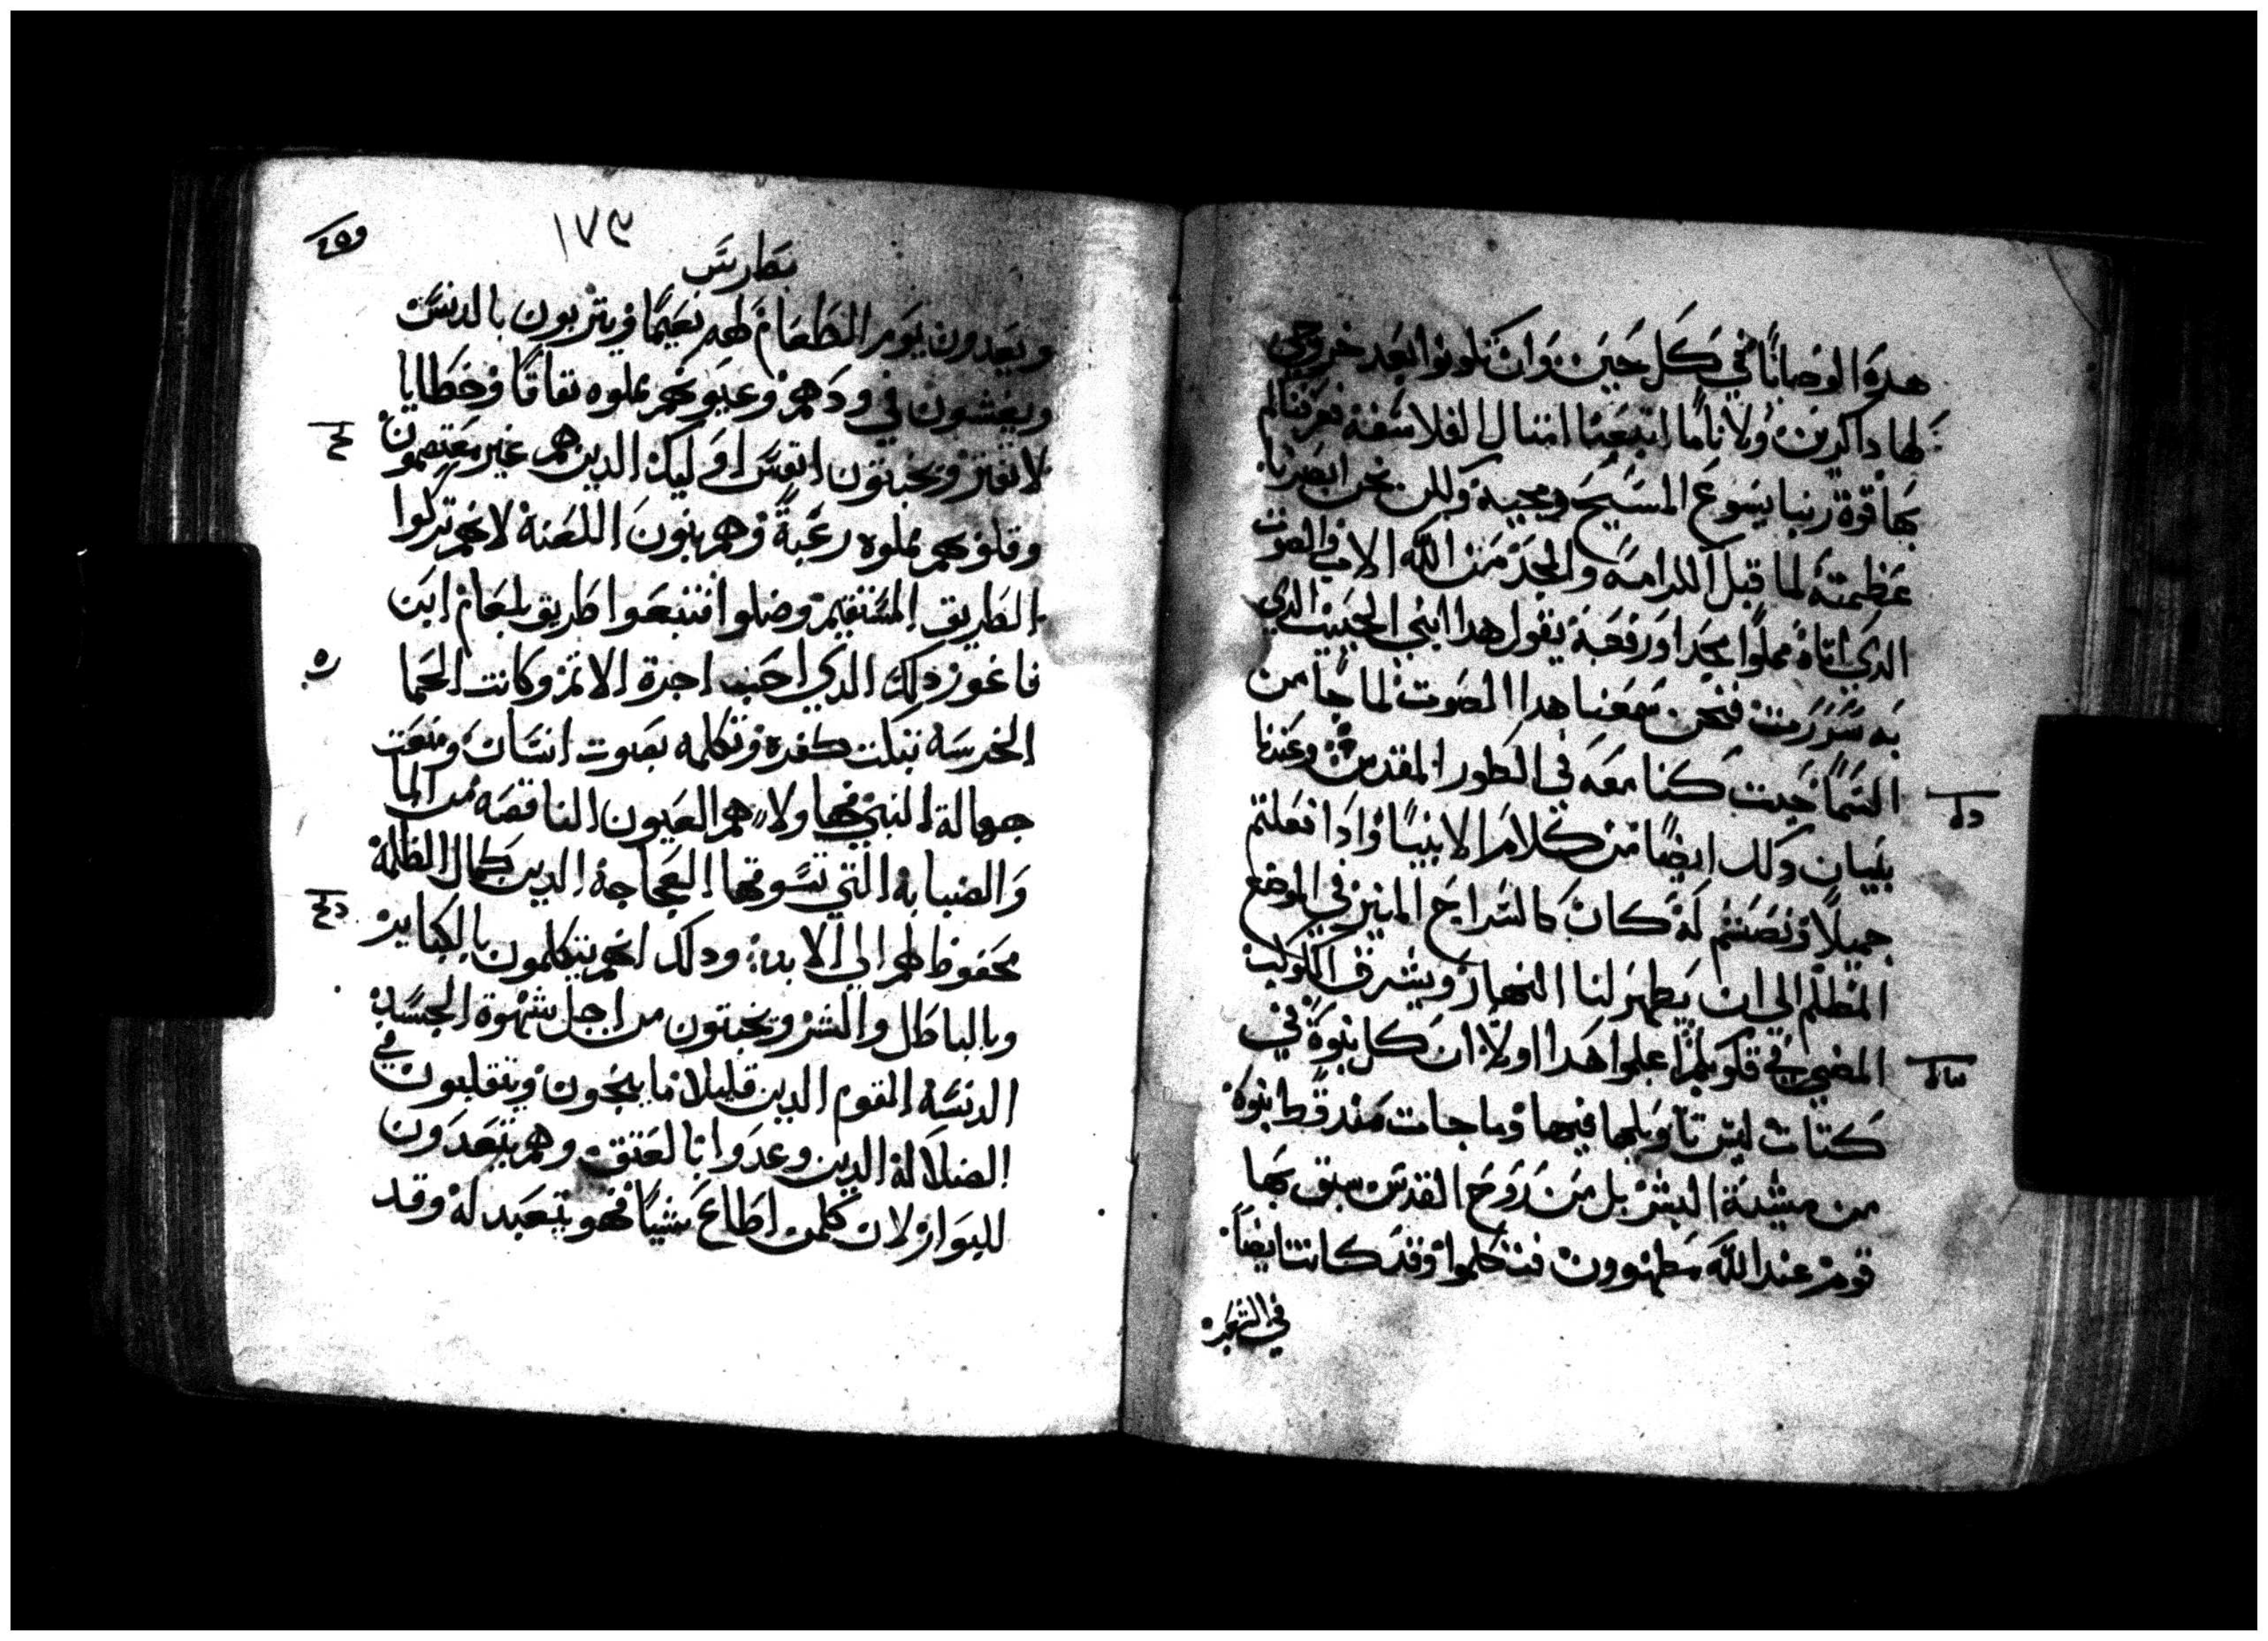 هده الوصايا في كل حين وان تكونوا بعد خروجي
لها داكرين ولاناما اتبعنا امتال الفلاسفه فعرفناكم
بها قوة ربنا يسوع المسيح ومجييه ولكن نحن ابصرنا
عظمته لما قبل الكرامه والمجد من الله الاب والصوت
الدي اتاه مملوا مجدا ورفعة يقول هدا ابني الحبيب الدي
به سررت فنحن سمعنا هدا الصوت لما جا من
السما حيت كنا معه في الطور المقدس وعندنا
بيان دلك ايضا من كلام الانبيا وادا فعلتم
جميلا ونصتم له كان كالسراج المنير في الموضع
المظلم الي ان يظهر لنا النهار ويشرق الكوكب
المضي في قلوبكم اعلموا هدا اولا ان كل نبوة في
كتاب ليس تاويلها فيها وما جات مند قط نبوة
من مشية البشر بل من روح القدس سبق بها
قوم عند الله مطهرون فتكلموا وقد كانت ايضا
في الشعب
١٧٩
بطرس
ويعدون يوم الطعام لهم نعيما ويتربون بالدنس
ويغشون في ودهم وعيونهم مملوه نفاقا وخطايا
لا تفتر ويخبتون انفس اوليك الدين هم غير معتصمون
وقلوبهم مملوه رغبة وهم بنون اللعنة لانهم تركوا
الطريق المستقيم وضلوا فتبعوا طريق بلعام ابن
فاغور دلك الدي احب اجرة الاتم وكانت الحما
الخرسه تبكت كفره وتكلمه بصوت انسان ومنعت
جهالة النبي فهاولا هم العيون الناقصه من الما
والضبابة التي تسوقها العجاجة الدين كمال الظلمة
محفوظ لهم الي الابد ودلك انهم يتكلمون بالكباير
وبالباطل والشر ويخبتون من اجل شهوة الجسد
الدنسه القوم الدين قليلا ما ينجون ويتقلبون في
الضلالة الدين وعدوا بالعتق وهم يتعبدون
للبوار لان كلمن اطاع شيا فهو يتعبد له وقد